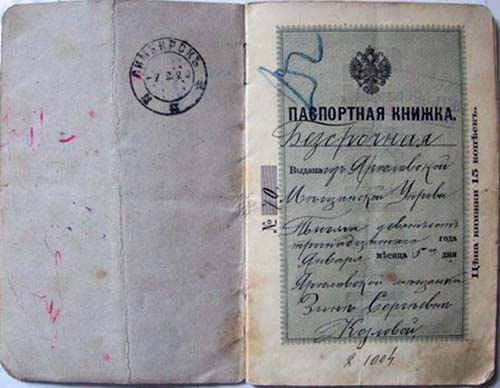 СИМБИРСКЪ
ПАСПОРТНАЯ КНИЖКА.
Безсрочная
Выдана изъ Ярославской
Мѣщанской Управы
Тысяча девятьсотъ
тринадцатаго года
Января мѣсяца 5 дня
Ярославской мѣщанкѣ
Зинѣ Сергѣевнѣ
Козловой
№ 70
Цѣна книжки 15 копѣекъ.
1004.